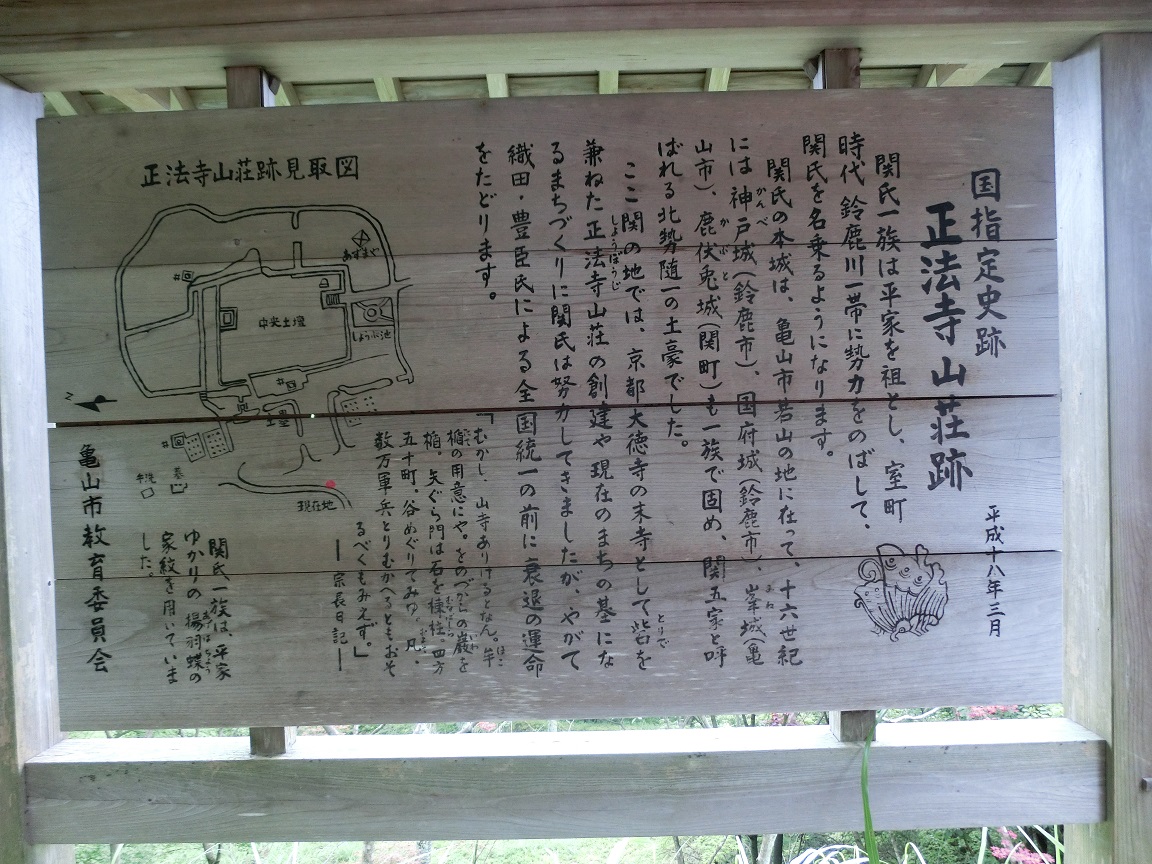 国指定史跡
正法寺山荘跡
平成十八年三月
関氏一族は平家を祖とし、室町
時代鈴鹿川一帯に勢力をのばして、
関氏を名乗るようになります。
関氏の本城は、亀山市若山の地に在って、十六世紀
には神戸城(鈴鹿市)、国府城(鈴鹿市)、峯城(亀
かんべ
みね
山市)、鹿伏兎城(関町)も一族で固め、関五家と呼
かぶと
ばれる北勢随一の土豪でした。
ここ関の地では、京都大徳寺の末寺として砦を
とりで
兼ねた正法寺山荘の創建や現在のまちの基にな
しょうぼうじ
るまちづくりに関氏は努力してきましたが、やがて
織田・豊臣氏による全国統一の前に衰退の運命
をたどります。
「むかし、山寺ありけるとなん。
楯の用意にや。をのづからの巌を
楯。矢ぐら門は石を棟柱。四方
五十町。谷めぐりてみゆ。凡、
数万軍兵とりむかへるともおそ
るべくもみえず。」
―宗長日記―
正法寺山荘跡見取図
あずまや
井
中央土壇
しょうぶ池
井
土塁
井
現在地
墓
関氏一族は、平家
ゆかりの揚羽蝶の
あげはちょう
家紋を用いていま
した。
亀山市教育委員会